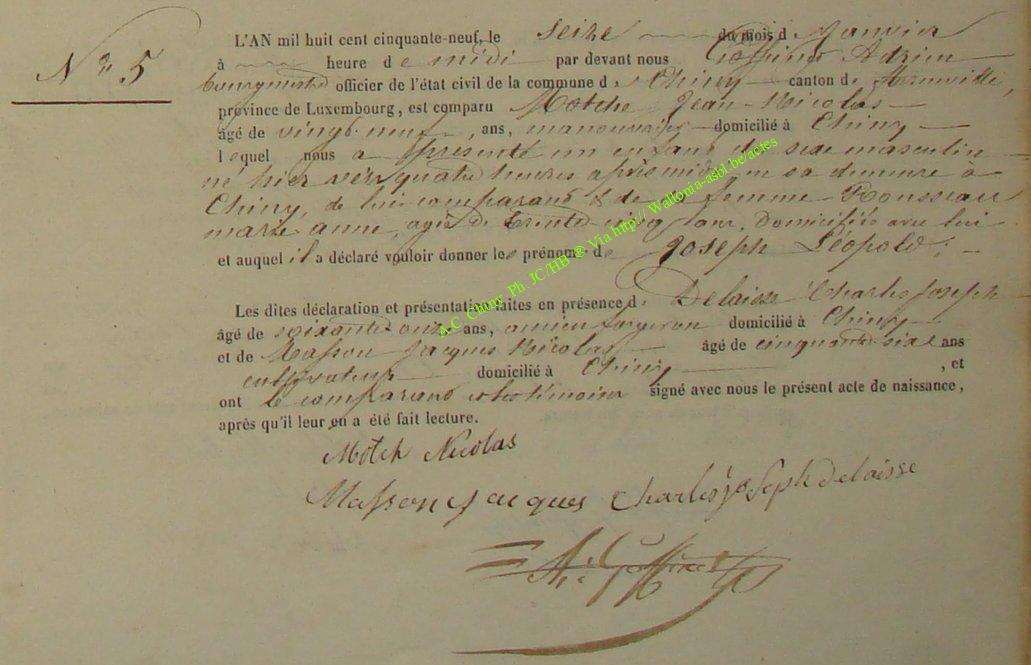 N° 5
L'AN mil huit cent cinquante-neuf, le seize du mois d Janvier
à heure de midi par devant nous Goffinet Adrien
bourgmestre officier de l'état civil de la commune de Chiny canton de Florenville,
province de Luxembourg, est comparu Motche Jean-Nicolas
âgé de vingt neuf, ans, manouvrier domicilié à Chiny
lequel nous a présenté un enfant du sexe masculin
né hier vers quatre heures après midi, en sa demeure à
Chiny, de lui comparant & de femme Rousseau
marie anne, agée de trente cinq ans, domiciliée avec lui
et auquel il a déclaré vouloir donner les prénoms de Joseph Léopold. -
Les dites déclaration et présentation faites en présence de Delaisse Charles Joseph
âgé de soixante onze ans, ancien forgeron domicilié à Chiny
et de Masson Jacques Nicolas âgé de cinquante six ans
cultivateur domicilié à Chiny , et
ont le comparant & les témoins signé avec nous le présent acte de naissance,
après qu'il leur en a été fait lecture.
Motch Nicolas
Masson Jacques Charles joseph delaisse
A. Goffinet
A.C Chiny Ph. JC/HB @ Via http:// Wallonia-asbl.be/actes